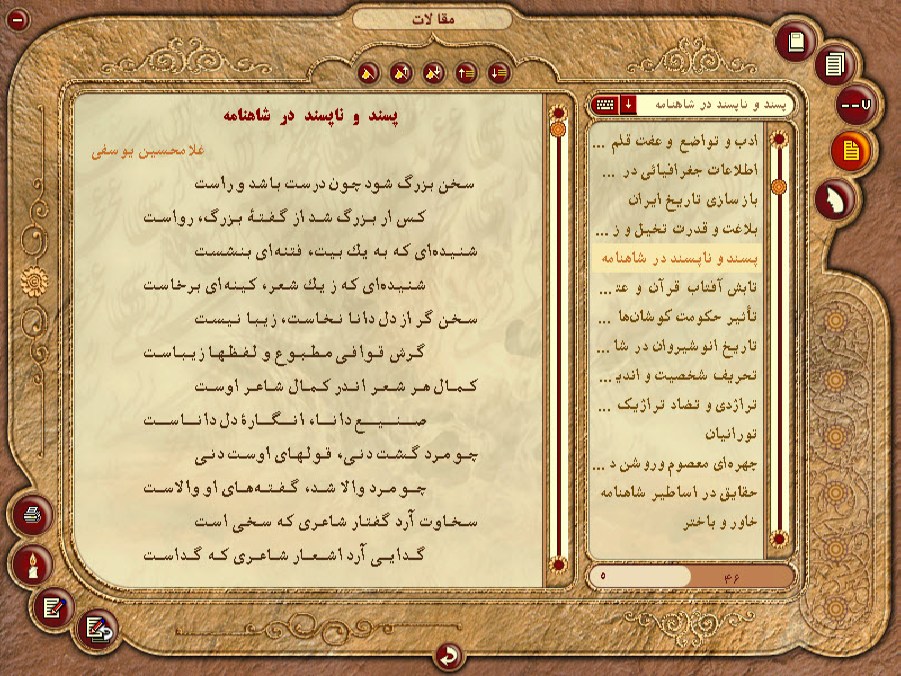 مقالات
پسند و ناپسند در شاهنامه
غلامحسین یوسفی
سخن بزرگ شود چون درست باشد و راست
کس ار بزرگ شد از گفتهٔ بزرگ، رواست
شنیده‌ای که به یك بیت، فتنه‌ای بنشست
شنیده‌ای که ز یك شعر، کینه‌ای برخاست
سخن گر از دل دانا نخاست، زیبا نیست
گرش قوافی مطبوع و لفظها زیباست
کمال هر شعر اندر کمال شاعر اوست
صنیع دانا، انگارهٔ دل داناست
چو مرد گشت دنی، قولهای اوست دنی
چو مرد والا شد، گفته‌های او والاست
سخاوت آرد گفتار شاعری که سخی است
گدایی آرد اشعار شاعری که گداست
پسند و ناپسند در شاهنامه
ادب و تواضع و عفت قلم ...
اطلاعات جغرافیائی در ...
بازسازی تاریخ ایران
بلاغت و قدرت تخیل و ز ...
پسند و ناپسند در شاهنامه
تابش آفتاب قرآن و عتـ ...
تأثیر حکومت کوشان‌ها ...
تاریخ انوشیروان در شا ...
تحریف شخصیت و اندیـ ...
تراژدی و تضاد تراژیک ...
تورانیان
چهره‌ای معصوم وروشن د ...
حقایق در اساطیر شاهنامه
خاور و باختر
۵
۴۶